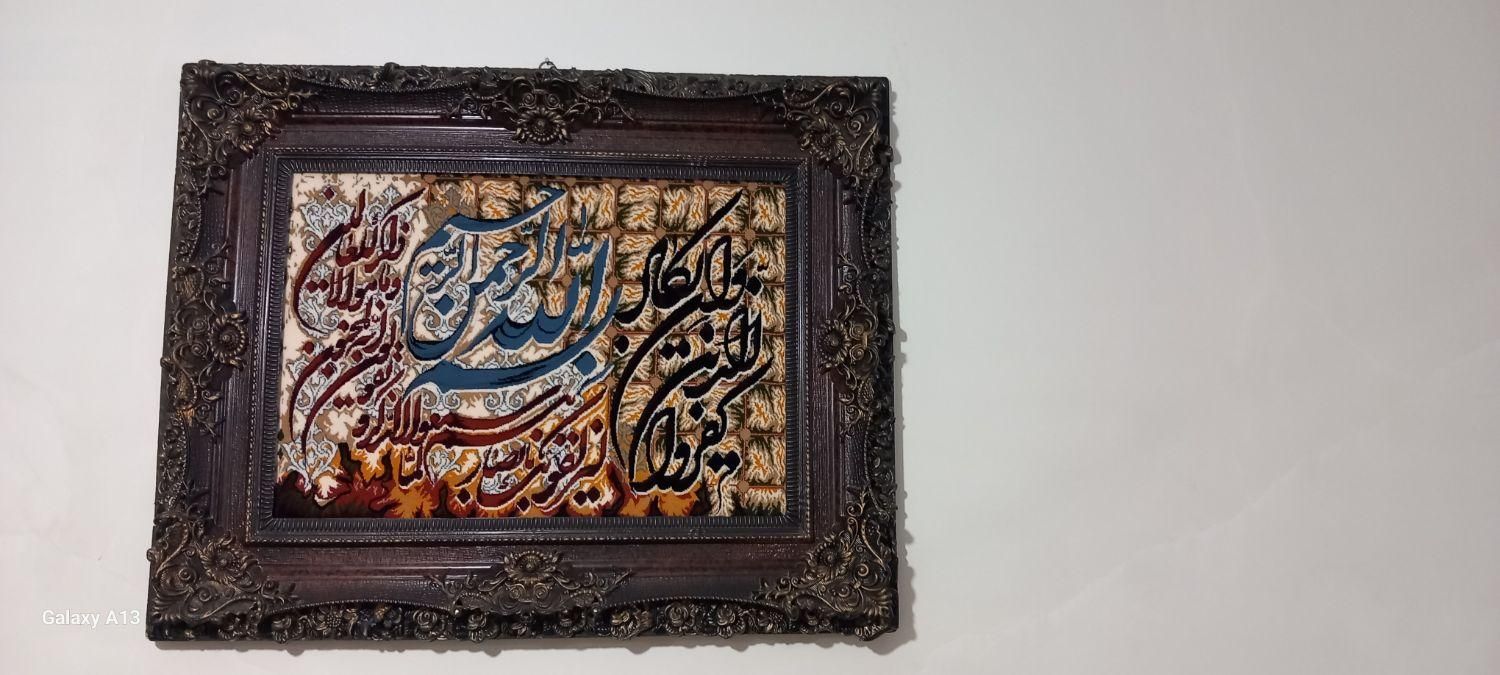 بسم الله الرحمن الرحیم
وان یکاد
الذین
کفروا
لیزلقونک بابصارهم
لما سمعوا الذکر و
یقولون انه لمجنون
وما هو الا
ذکر للعالمین
Galaxy A13